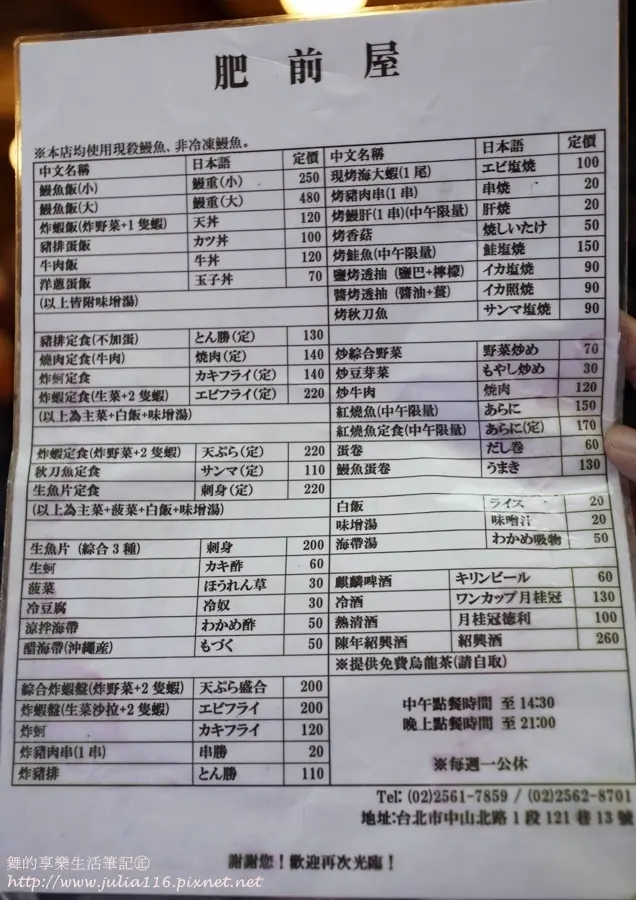 肥前屋
※本店均使用現殺鰻魚、非冷凍鰻魚。
中文名稱 日本語 定價
鰻魚飯(小) 鰻重(小) 250
鰻魚飯(大) 鰻重(大) 480
炸蝦飯(炸野菜+1隻蝦) 天丼 120
豬排蛋飯 カツ丼 100
牛肉飯 牛丼 120
洋蔥蛋飯 玉子丼 70
(以上皆附味增湯)
豬排定食(不加蛋) とん勝(定) 130
燒肉定食(牛肉) 焼肉(定) 140
炸蚵定食 カキフライ(定) 140
炸蝦定食(生菜+2隻蝦) エビフライ(定) 220
(以上為主菜+白飯+味增湯)
炸蝦定食(炸野菜+2隻蝦) 天ぷら(定) 220
秋刀魚定食 サンマ(定) 110
生魚片定食 刺身(定) 220
(以上為主菜+菠菜+白飯+味增湯)
生魚片 (綜合3種) 刺身 200
生蚵 カキ酢 60
菠菜 ほうれん草 30
冷豆腐 冷奴 30
涼拌海帶 わかめ酢 50
醋海帶(沖繩産) もづく 50
綜合炸蝦盤(炸野菜+2隻蝦) 天ぷら盛合 200
炸蝦盤(生菜沙拉+2隻蝦) エビフライ 200
炸蚵 カキフライ 120
炸豬肉串(1串) 串勝 20
炸豬排 とん勝 110
中文名稱 日本語 定價
現烤海大蝦(1尾) エビ塩焼 100
烤豬肉串(1串) 串焼 20
烤鰻肝(1串)(中午限量) 肝焼 20
烤香菇 焼しいたけ 50
烤鮭魚(中午限量) 鮭塩焼 150
鹽烤透抽 (鹽巴+檸檬) イカ塩焼 90
醬烤透抽 (醬油+薑) イカ照焼 90
烤秋刀魚 サンマ塩焼 90
炒綜合野菜 野菜炒め 70
炒豆芽菜 もやし炒め 30
炒牛肉 焼肉 120
紅燒魚(中午限量) あらに 150
紅燒魚定食(中午限量) あらに(定) 170
蛋卷 だし巻 60
鰻魚蛋卷 うまき 130
白飯 ライス 20
味增湯 味噌汁 20
海帶湯 わかめ吸物 50
麒麟啤酒 キリンビール 60
冷酒 ワンカップ月桂冠 130
熱清酒 月桂冠徳利 100
陳年紹興酒 紹興酒 260
※提供免費烏龍茶(請自取)
中午點餐時間 至 14:30
晚上點餐時間 至 21:00
※每週一公休
Tel: (02)2561-7859 / (02)2562-8701
地址:台北市中山北路1段121巷13號
謝謝您!歡迎再次光臨!
舞的享樂生活筆記
http://www.julia116.pixnet.net